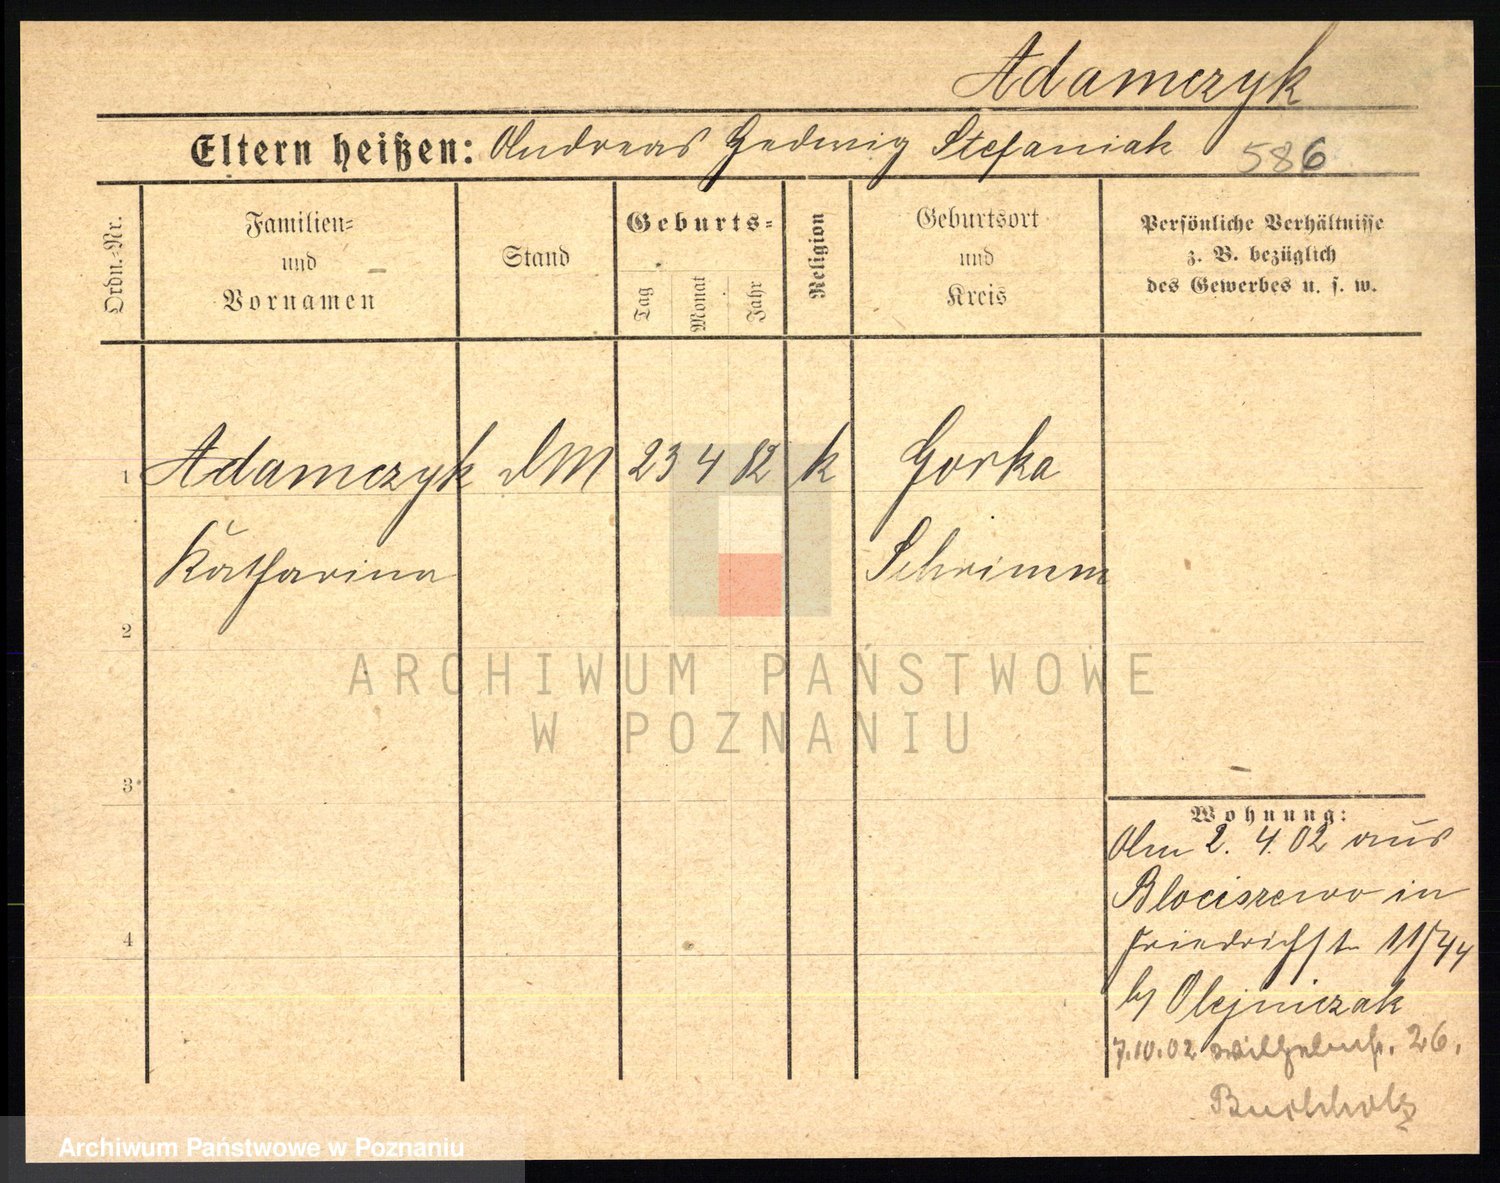 Adamczyk
Eltern heißen: Andreas Hedwig Stefaniak 586
Ordn.-Nr.
Familien=
und
Vornamen
Stand
Geburts=
Tag
Monat
Jahr
Religion
Geburtsort
und
Kreis
Persönliche Verhältnisse
z. B. bezüglich
des Gewerbes u. s. w.
1 Adamczyk DM 23 4 82 k Gorka
Katharina Schrimm
2
ARCHIWUM PAŃSTWOWE
W POZNANIU
3
Wohnung:
Am 2. 4. 02 aus
Blociszewo in
Friedrichst 11/44
by Olejniczak
7.10.02 Wilhelmst. 26.
Buchholz
4
Archiwum Państwowe w Poznaniu